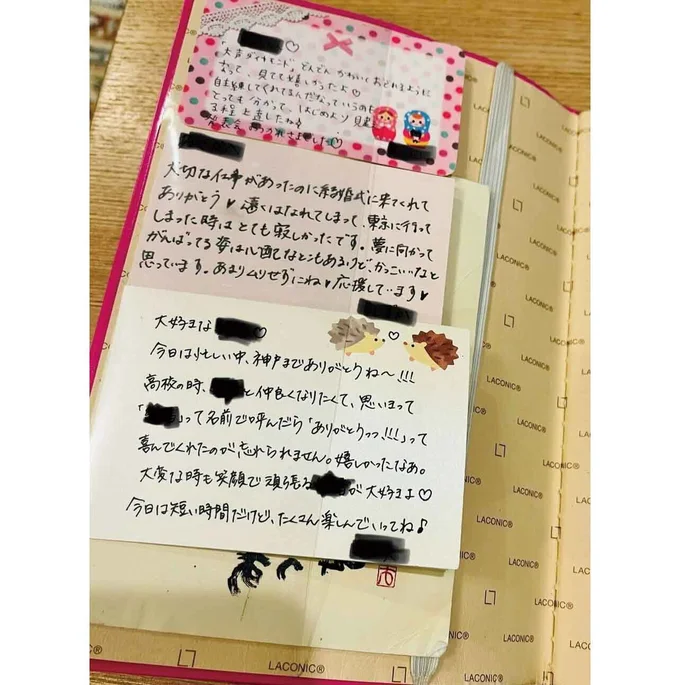 ♡
「大声ダイヤモンド」どんどんかわいくおどれるように
なって、見てても嬉しかったよ♡
自主練してくれてるんだなっていうのが
とってもうかがって、はじめより見違
える程上達したね
発表会 おつかれさまでした♡
大切な仕事があったのに結婚式に来てくれて
ありがとう♥ 遠くはなれてしまって、東京に行って
しまった時はとても寂しかったです。夢に向かって
がんばってる姿は心配なこともあるけど、かっこいいなと
思っています。あまりムリせずにね♥応援しています♥
大好きな ♡
今日は忙しい中、神戸までありがとうね〜!!!
高校の時、 と仲良くなりたくて、思いきって
「 」って名前で呼んだら「ありがとうっっ!!!」って
喜んでくれたのが忘れられません。嬉しかったなあ。
大変な時も笑顔で頑張る が大好きよ♡
今日は短い時間だけど、たくさん楽しんでいってね♪
LACONIC®
LACONIC®
LACONIC®
LACONIC®
LACONIC®
LACONIC®
LACONIC®
LACONIC®